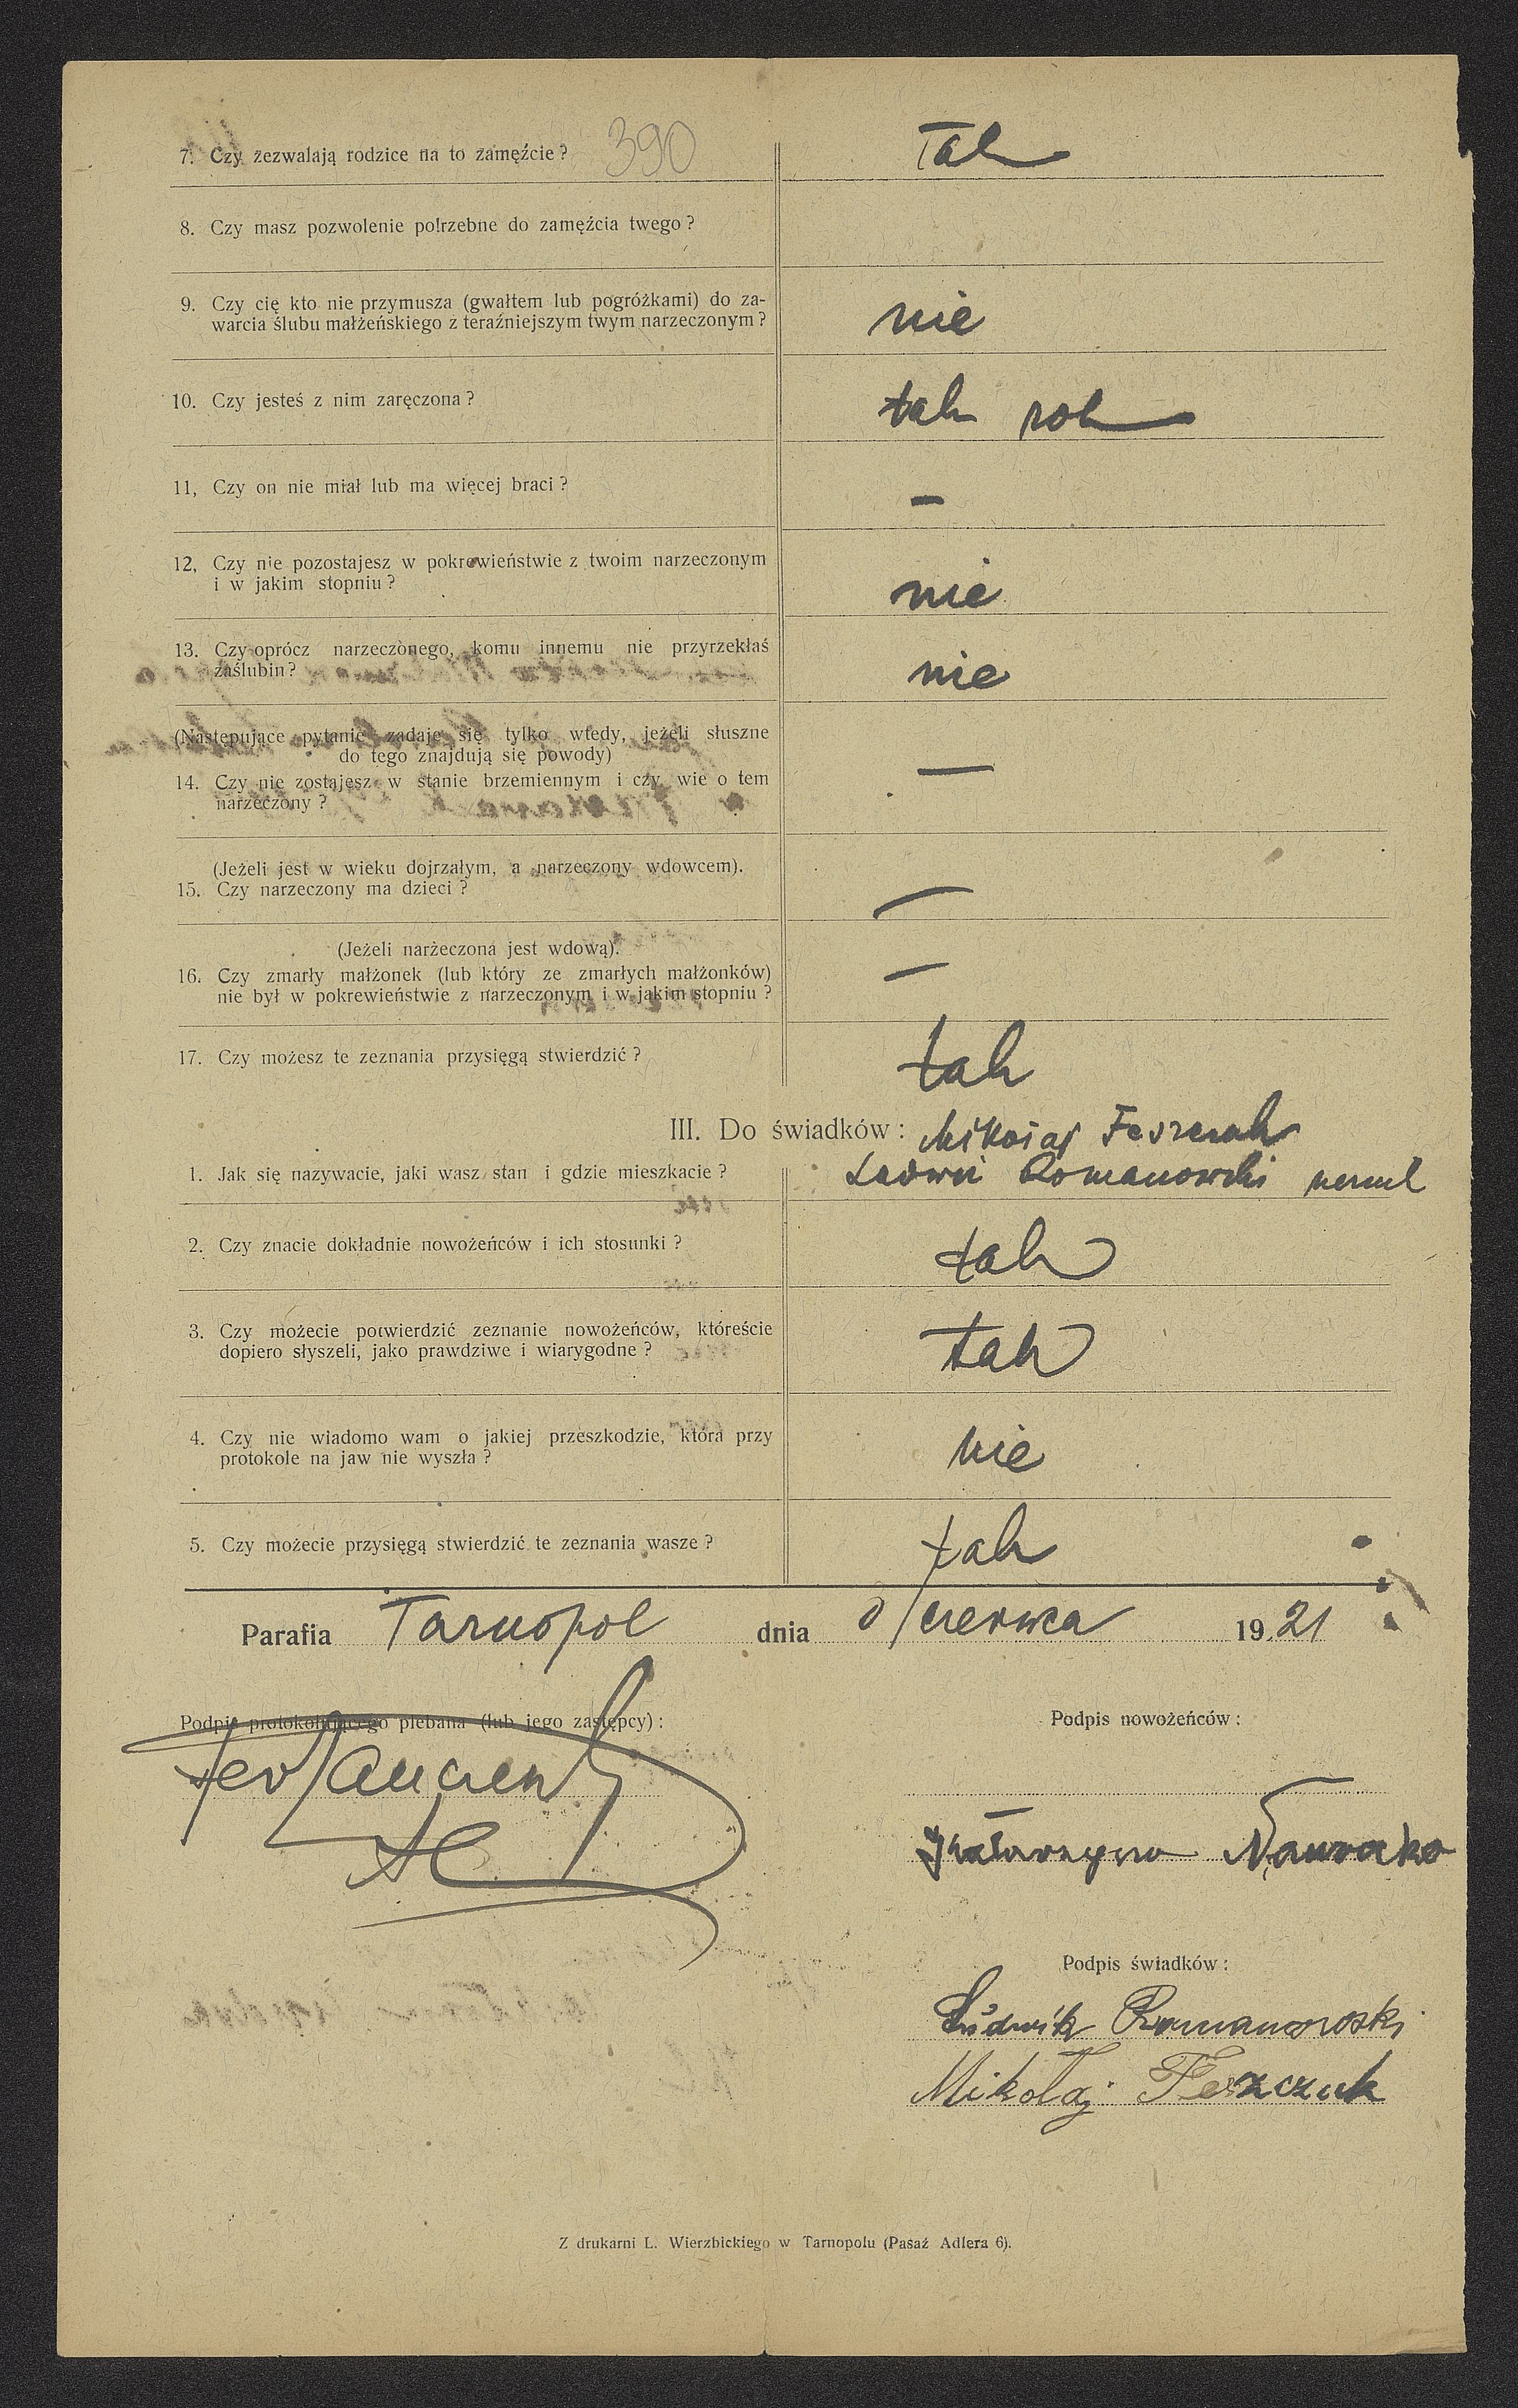 390
7. Czy zezwalają rodzice na to zamęźcie? Tak
8. Czy masz pozwolenie potrzebne do zamęźcia twego?
9. Czy cię kto nie przymusza (gwałtem lub pogróżkami) do za-
warcia ślubu małżeńskiego z teraźniejszym twym narzeczonym? nie
10. Czy jesteś z nim zaręczona? tak rok
11, Czy on nie miał lub ma więcej braci? —
12, Czy nie pozostajesz w pokrewieństwie z twoim narzeczonym
i w jakim stopniu? nie
13. Czy oprócz narzeczonego, komu innemu nie przyrzekłaś
zaślubin? nie
(Następujące pytanie zadaje się tylko wtedy, jeżeli słuszne
do tego znajdują się powody)
14. Czy nie zostajesz w stanie brzemiennym i czy wie o tem
narzeczony? —
(Jeżeli jest w wieku dojrzałym, a narzeczony wdowcem).
15. Czy narzeczony ma dzieci? —
(Jeżeli narzeczona jest wdową).
16. Czy zmarły małżonek (lub który ze zmarłych małżonków)
nie był w pokrewieństwie z narzeczonym i w jakim stopniu? —
17. Czy możesz te zeznania przysięgą stwierdzić? tak
III. Do świadków: Mikołaj Feszczuk
1. Jak się nazywacie, jaki wasz stan i gdzie mieszkacie? Ludwik Romanowski
2. Czy znacie dokładnie nowożeńców i ich stosunki? tak
3. Czy możecie potwierdzić zeznanie nowożeńców, któreście
dopiero słyszeli, jako prawdziwe i wiarygodne? tak
4. Czy nie wiadomo wam o jakiej przeszkodzie, która przy
protokole na jaw nie wyszła? nie
5. Czy możecie przysięgą stwierdzić te zeznania wasze? tak
Parafia Tarnopol dnia czerwca 1921
Podpis protokołującego plebana (lub jego zastępcy):
Podpis nowożeńców:
Katarzyna
Podpis świadków:
Ludwik Romanowski
Mikołaj Feszczuk
Z drukarni L. Wierzbickiego w Tarnopolu (Pasaż Adlera 6).